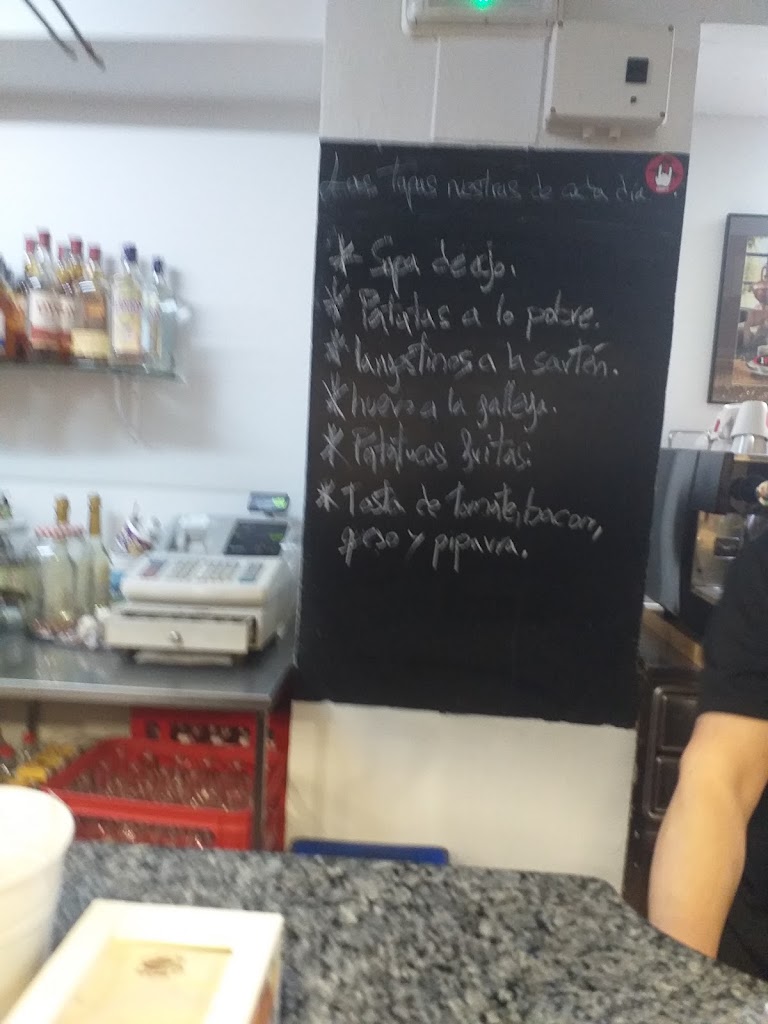 Las Tapas nestras de cada dia.
* Sopa de ajo.
* Patatas a lo pobre.
* langostinos a la sartén.
* huevo a la gallega.
* Patatucas fritas.
* Tosta de tomate, bacon,
queso y piparra.